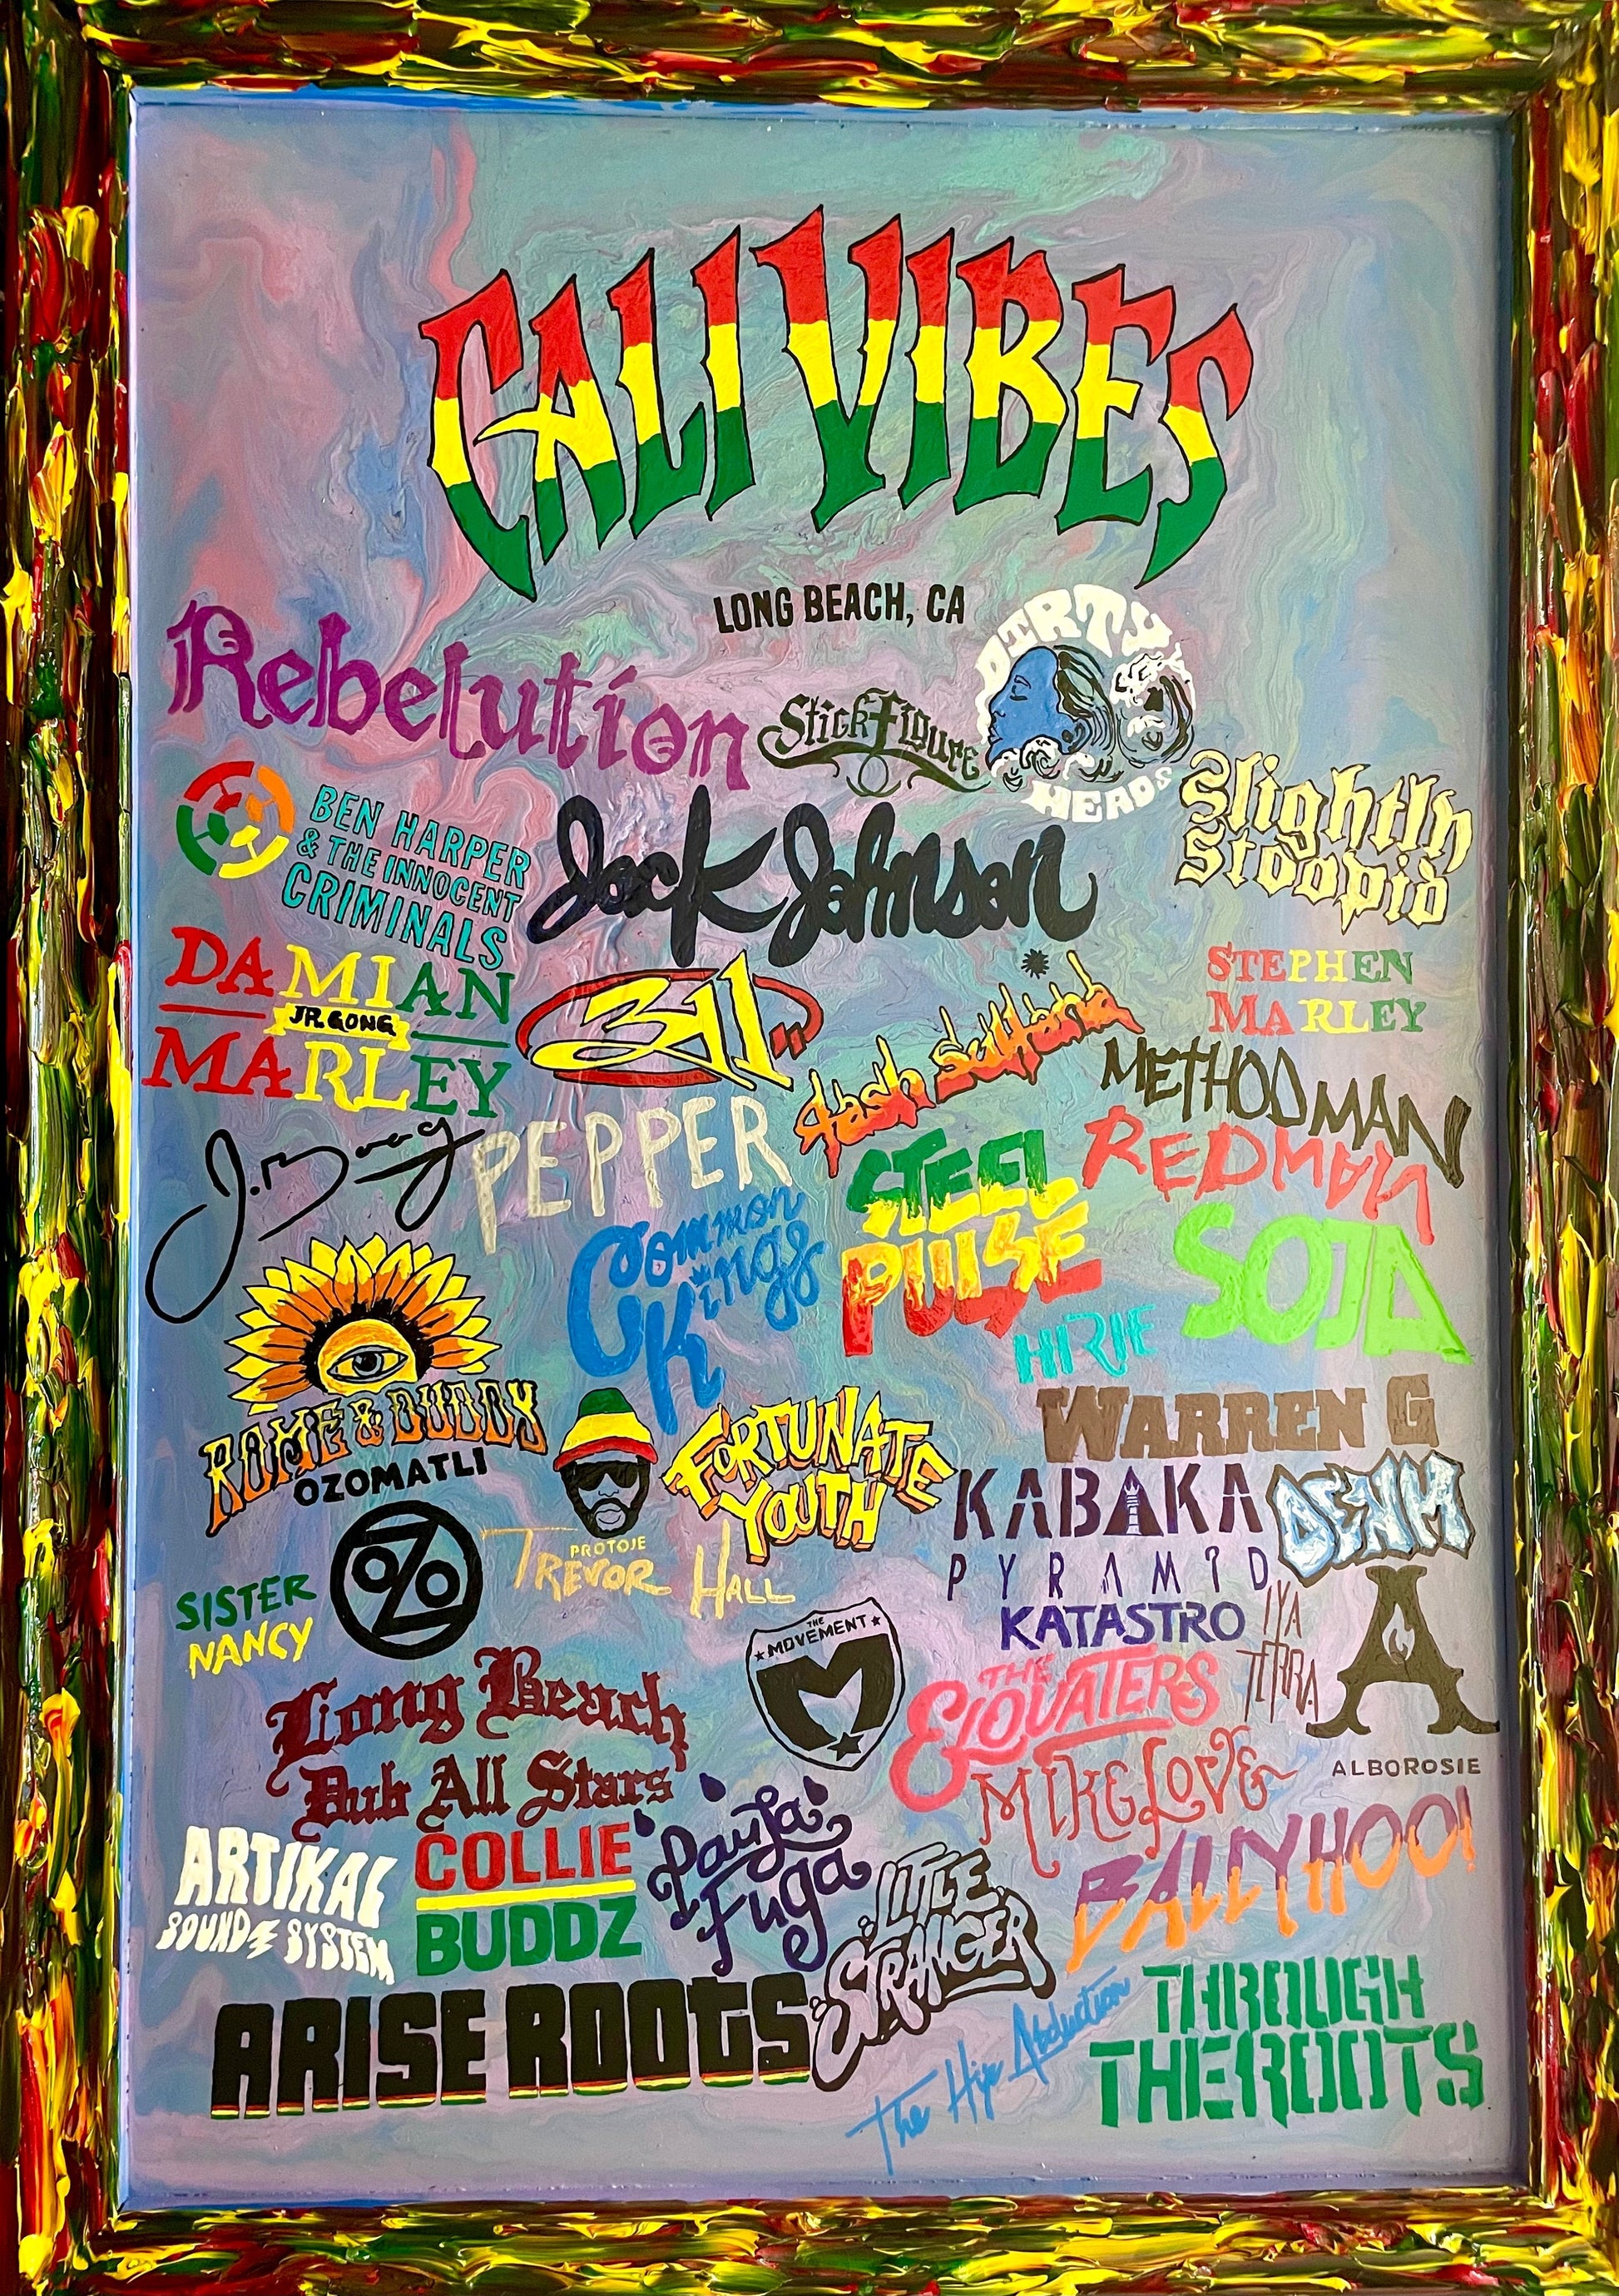 CALI VIBES
LONG BEACH, CA
Rebelution
Stick Figure
DIRTY
HEADS
BEN HARPER
& THE INNOCENT
CRIMINALS
Jack Johnson
Slightly
Stoopid
DAMIAN
JR. GONG
MARLEY
311
Hash Sultana
STEPHEN
MARLEY
METHOD MAN
REDMAN
J. Boog
PEPPER
STEEL
PULSE
Common
Kings
SOJA
HIRIE
ROME & DUDDY
OZOMATLI
OZO
PROTOJE
FORTUNATE
YOUTH
WARREN G
KABAKA
PYRAMID
DENM
TREVOR HALL
SISTER
NANCY
THE
MOVEMENT
M
KATASTRO
IYA
TERRA
A
ALBOROSIE
Long Beach
Dub All Stars
THE
ELOVATERS
MIKE LOVE
ARTIKAL
SOUND SYSTEM
COLLIE
BUDDZ
Paula
Fuga
LITTLE
STRANGER
BALLYHOO!
ARISE ROOTS
The Hip Abduction
THROUGH
THE ROOTS